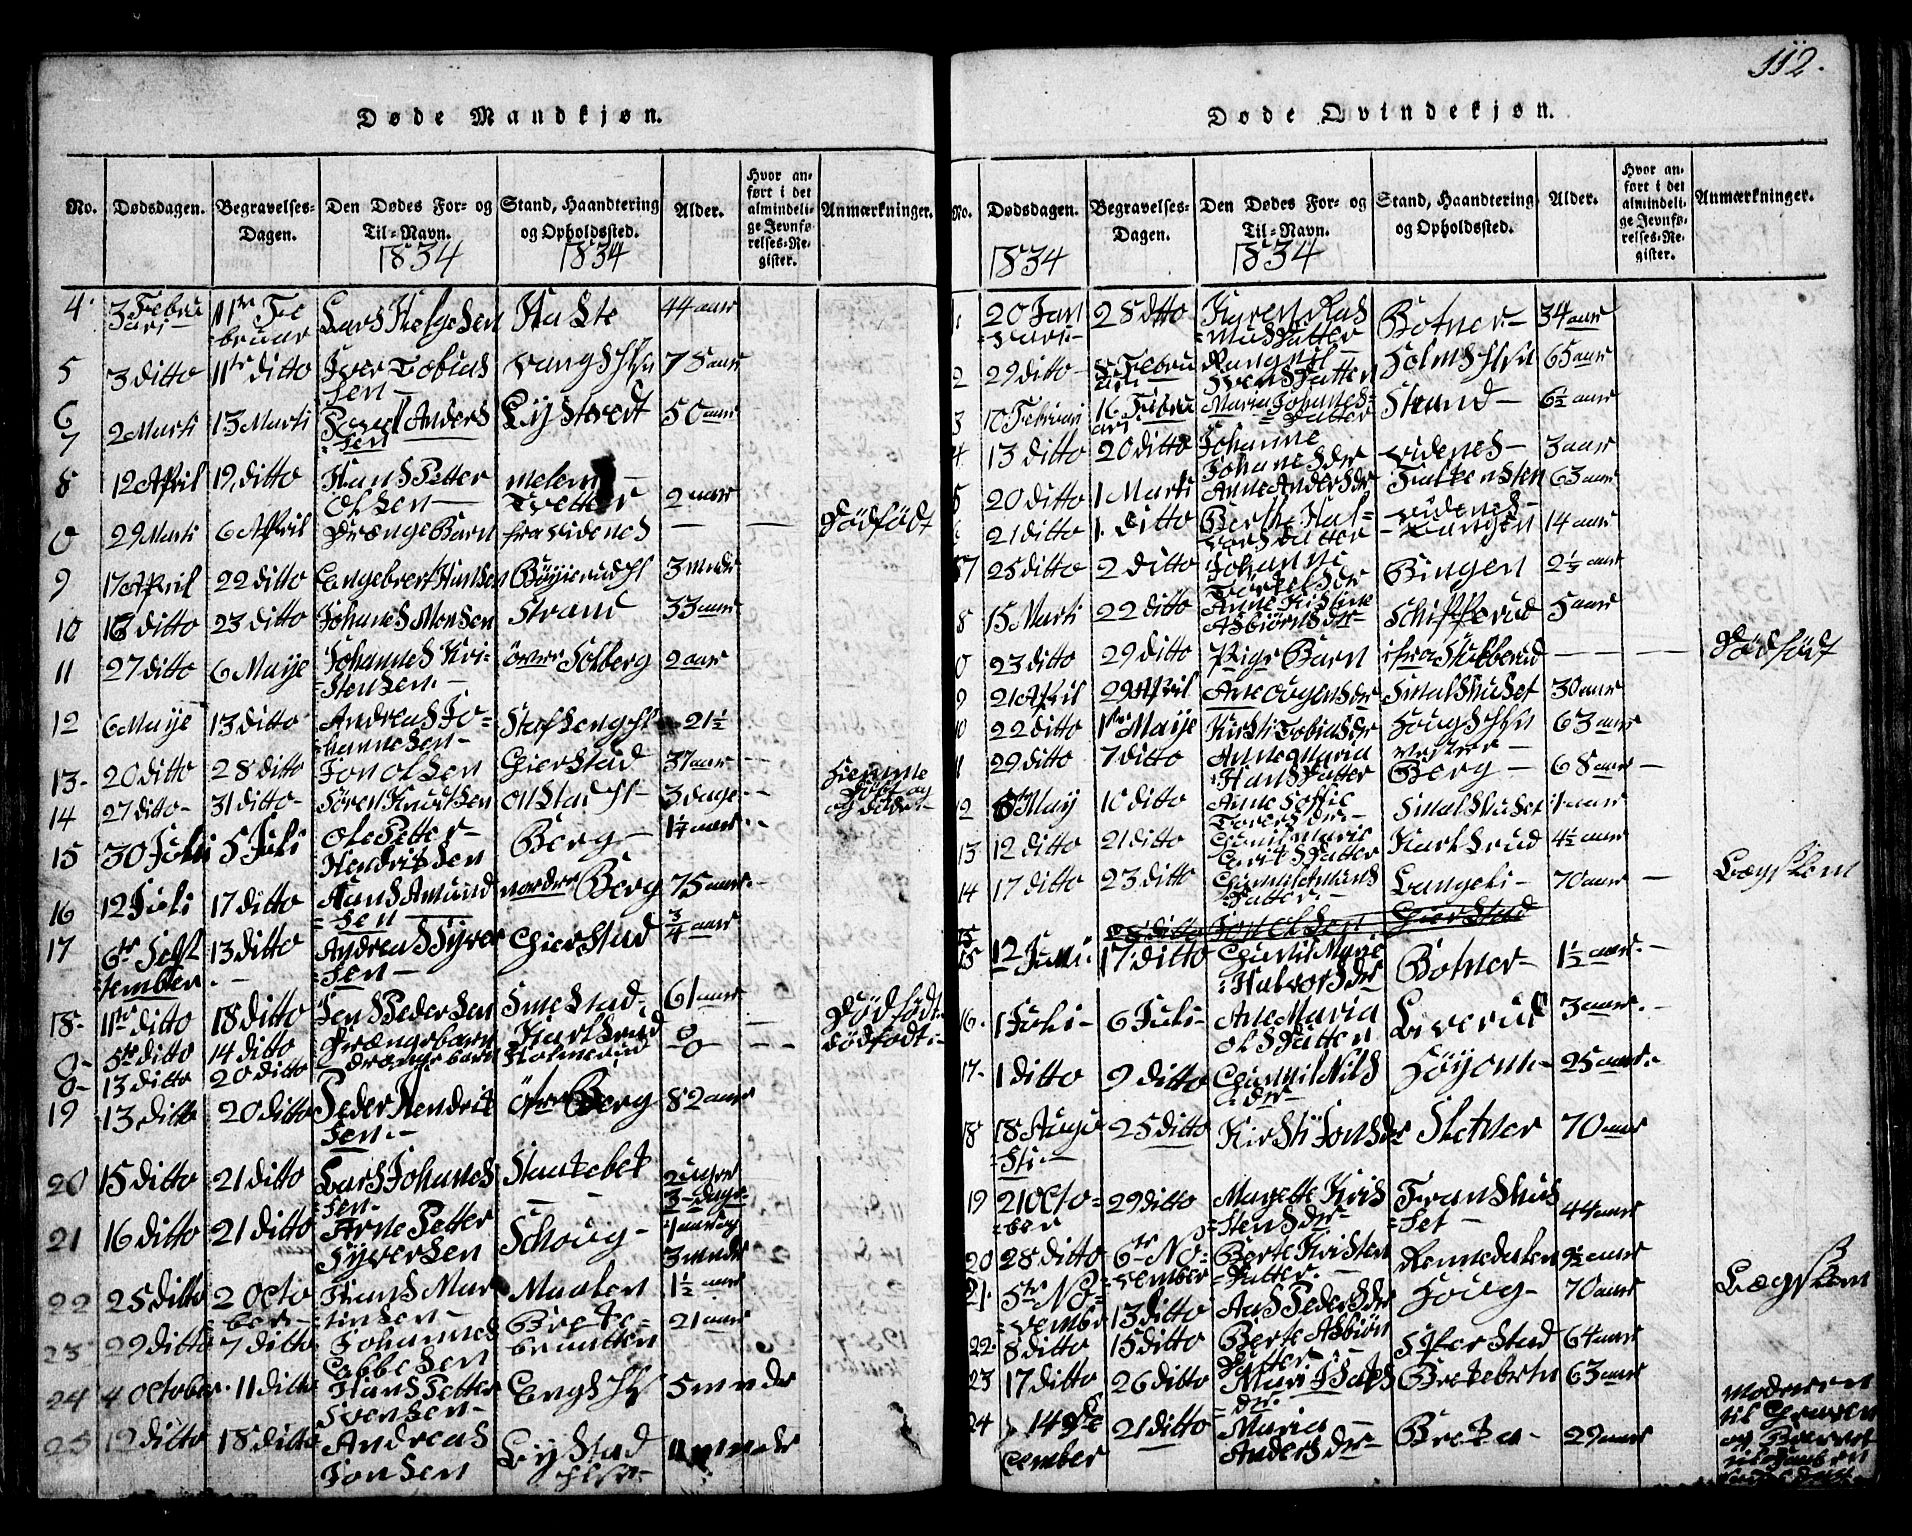 112.
Døde Mandkjøn.
No. Dødsdagen. Begravelses-Dagen. Den Dødes For- og Til-Navn. Stand, Haandtering og Opholdssted. Alder. Hvor anført i det almindelige Jevnførelses-Register. Anmærkninger.
1834 1834
4. 3 Februari 11te Februar Lars Helgesen Haste 44 aar
5 3 ditto 11te ditto Iver Tobiassen 75 aar
6
7 2 Marti 13 Marti Anderssen 50 aar
8 12 April 19 ditto Hans Petter Olsen Tvetter 2 aar
0 29 Marti 6 April Drænge Barn fra Videnes — — Dödfödt
9 17 April 22 ditto Engebret Hansen 3 mndr
10 ditto 23 ditto Johanes Monsen Strand 33 aar
11 27 ditto 6 Maije Johannes Kristensen öwer Solberg 2 aar
12 6 Maije 13 ditto Andreas Johannesen 21½
13. 20 ditto 28 ditto Jon Olsen Gierstad 37 aar
14 27 ditto 31 ditto Sören Knudsen 3 dage Hiemme döbt og död
15 30 Juli 5 Juli Ole Petter Hendriksen Berg 1¼ aar
16 12 Juli 17 ditto Hans Amundsen nordre Berg 75 aar
17 6te September 13 ditto Andreas Syversen Gierstad ¾ aar
18. 11te ditto 18 ditto Jens Pedersen Smestad 61 aar
0 5te ditto 14 ditto Drængebarn Karlsrud 0 Dödfödt
0 13 ditto 20 ditto drænge barn Holmerud 0 dödfödt
19 13 ditto 20 ditto Peder Hendriksen öwer Berg 82 aar
20 15 ditto 21 ditto Lars Johanessen Staukebek 2 uger 3 dage
21 16 ditto 21 ditto Arne Petter Syversen Schoug 1 aar og 3 mndr
22 25 ditto 2 October Hans Martinsen Maalen 1½ aar
23 29 ditto 7 ditto Johannes Cabbesen Brekebraatten 21 aar
24 4 October 11 ditto Hans Petter Svensen 5 mndr
25 12 ditto 18 ditto Andreas Jonsen mndr
Døde Qvindekjøn.
No. Dødsdagen. Begravelses-Dagen. Den Dødes For- og Til-Navn. Stand, Haandtering og Opholdssted. Alder. Hvor anført i det almindelige Jevnførelses-Register. Anmærkninger.
1834 1834
1. 20 Januari 28 ditto Karen Rasmusdatter Botner 34 aar
2 29 ditto Februari Rangnil Svensdatter 65 aar
3 10 Februari 16 Februari Maria Johanesdatter Strand 6½ aar
4 13 ditto 20 ditto Johanne Johanesder Videnes 3 aar
5 20 ditto 1 Marti Anne Andersder Falkensten 63 aar
6 21 ditto 1. ditto Berthe Halvorsdatter Videnes Tangen 14 aar
7 25 ditto 2 ditto Johanne Torkelsder Bingen 2½ aar
8 15 Marti 22 ditto Anne Kistine Asbiörnsder Schipperud 5 aar
0 23 ditto 29 ditto Pige Barn ifra Stubberud — Dödfödt
9 21 April 29 April Ane Ougensder Smalshuset 30 aar
10 22 ditto 1te Maije Kirsti Tobiasder 63 aar
11 29 ditto 7 ditto Anne Maria Hansdatter Berg 68 aar
12 May 10 ditto Anne Soffie Smalshuset 1 aar
13 12 ditto 21 ditto Gunil Marie Eriksdatter Karlsrud 4½ aar
14 17 ditto 23 ditto Langeli 70 aar — Lægslem
15 28 ditto Jon Olsen Gierstad
15 12 Juni 17 ditto Gunil Marie Halvorsder Botner 1½ aar
16. 1 Juli 6 Juli Ane Maria Olsdatter Liverud 3 aar
17. 1 ditto 9 ditto Gunnil Nilsder Höyom 25 aar
18 18 Augusti 25 ditto Kirsti Jonsder Sletner 70 aar
19 21 October 29 ditto Magette Kristensder Franshusset 44 aar
20 28 ditto 6te November Berte Kristendatter Rennedalen 9½ aar
21. 5te November 13 ditto Aas Pedersder Houg 70 aar Lægslem
22. 8 ditto 15 ditto Berte Asbiöndatter 64 aar
23 17 ditto 26 ditto Mari Isaksder 63 aar
24 14 December 21 ditto Maria Andersder Breka 29 aar